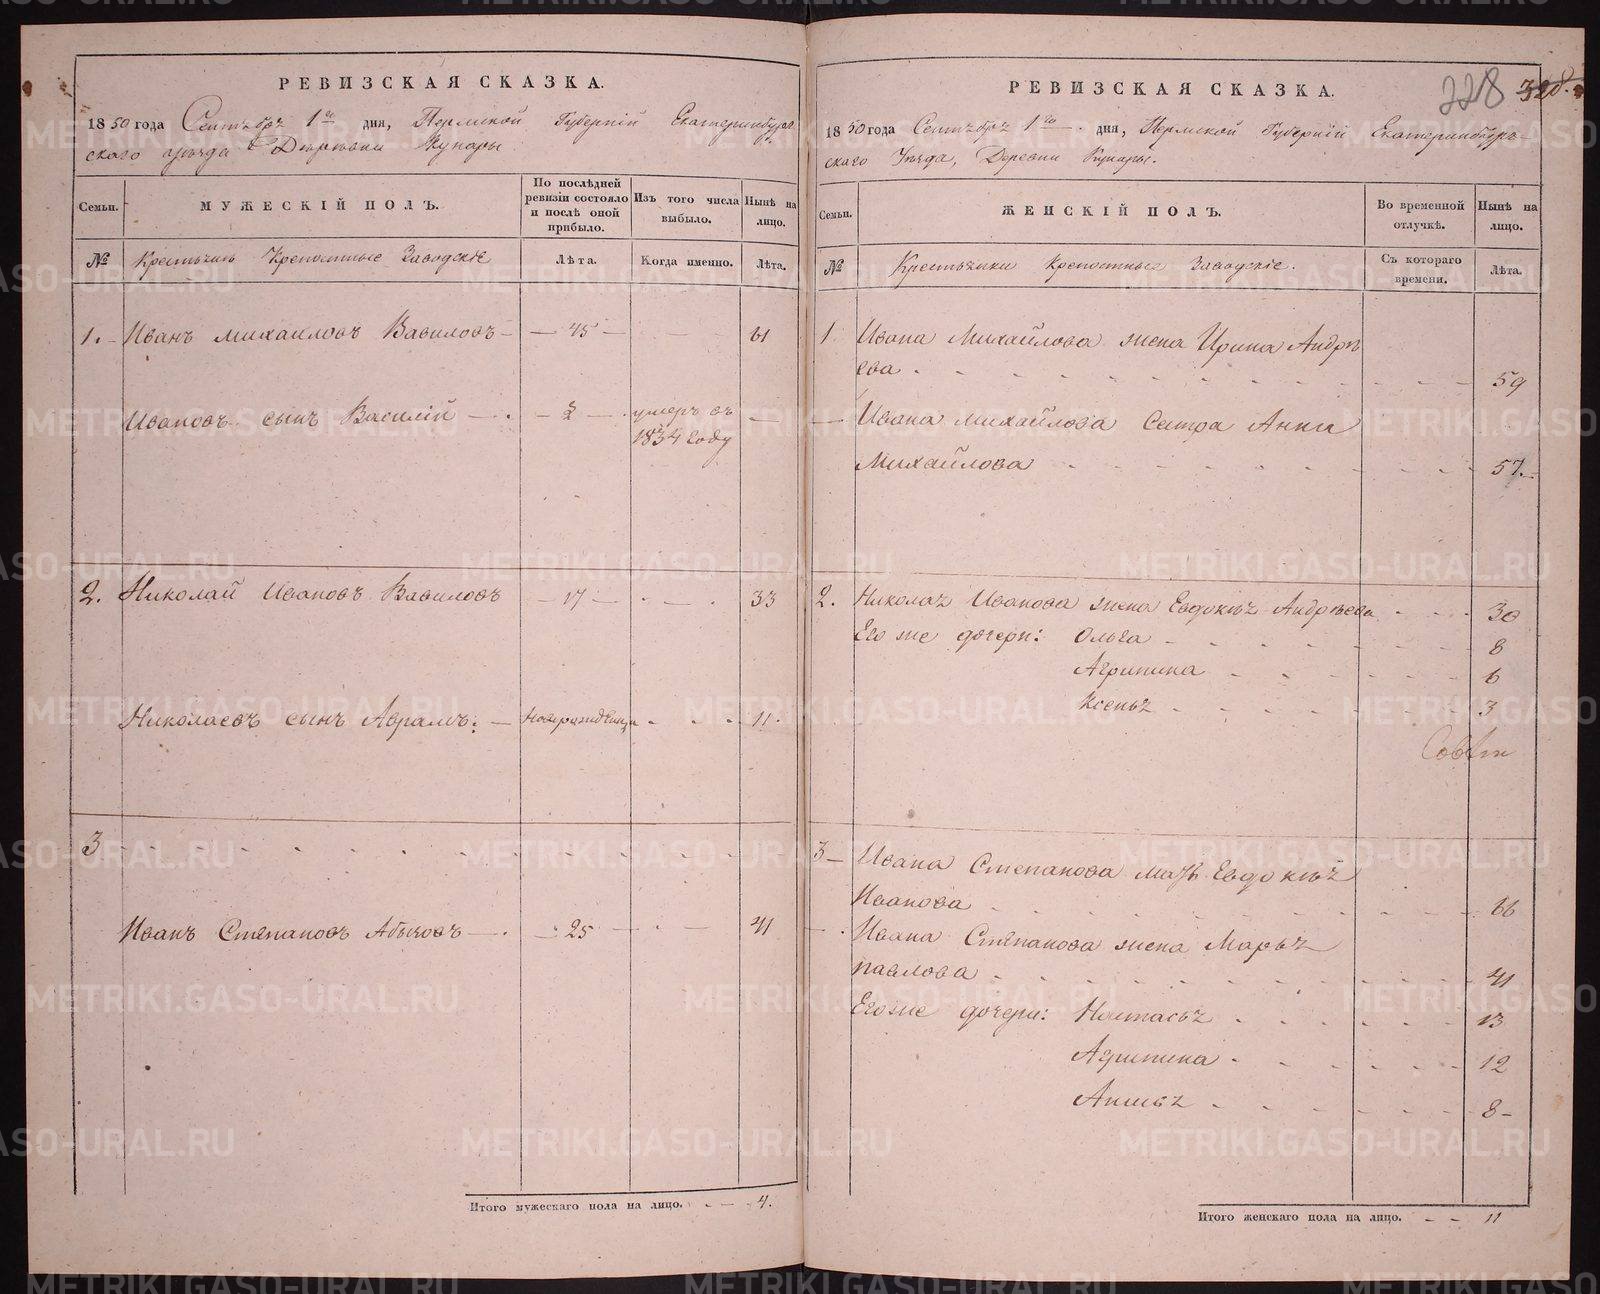 РЕВИЗСКАЯ СКАЗКА.
1850 года Сентября 1го дня, Пермской Губернiй Екатеринбург
скаго уѣзда Деревни Кунары
Семьи.
МУЖЕСКІЙ ПОЛЪ.
По послѣдней ревизіи состояло и послѣ оной прибыло.
Изъ того числа выбыло.
Нынѣ на лицо.
№ Крестьянъ Крепостные Заводскіе Лѣта. Когда именно. Лѣта.
1. Иванъ Михаиловъ Вавиловъ 45 61
Ивановъ сынъ Василій 2 умеръ въ
1834 году
2. Николай Ивановъ Вавиловъ 17 33
Николаевъ сынъ Аврамъ новорожденъ 11.
3
Иванъ Степановъ Абычовъ 25 41
Итого мужескаго пола на лицо. 4.
228 328.
РЕВИЗСКАЯ СКАЗКА.
1850 года Сентября 1го дня, Пермской Губернiй Екатеринбург
скаго Уѣзда, Деревни Кунары.
Семьи.
ЖЕНСКІЙ ПОЛЪ.
Во временной отлучкѣ.
Нынѣ на лицо.
№ Крестьянки крепостные Заводскіе. Съ котораго времени. Лѣта.
1. Ивана Михайлова жена Ирина Андрѣ
ева 59
Ивана Михайлова сестра Анна
Михайлова 57.
2. Николая Иванова жена Евдокія Андрѣева 30
Его же дочери: Ольга 8
Агрипина 6
Ксенья 3
3 Ивана Степанова мать Евдокія
Иванова 66
Ивана Степанова жена Марья
Павлова 41
Его же дочери: Настасья 13
Агрипина 12
Анисья 8
Итого женскаго пола на лицо. 11
METRIKI.GASO-URAL.RU